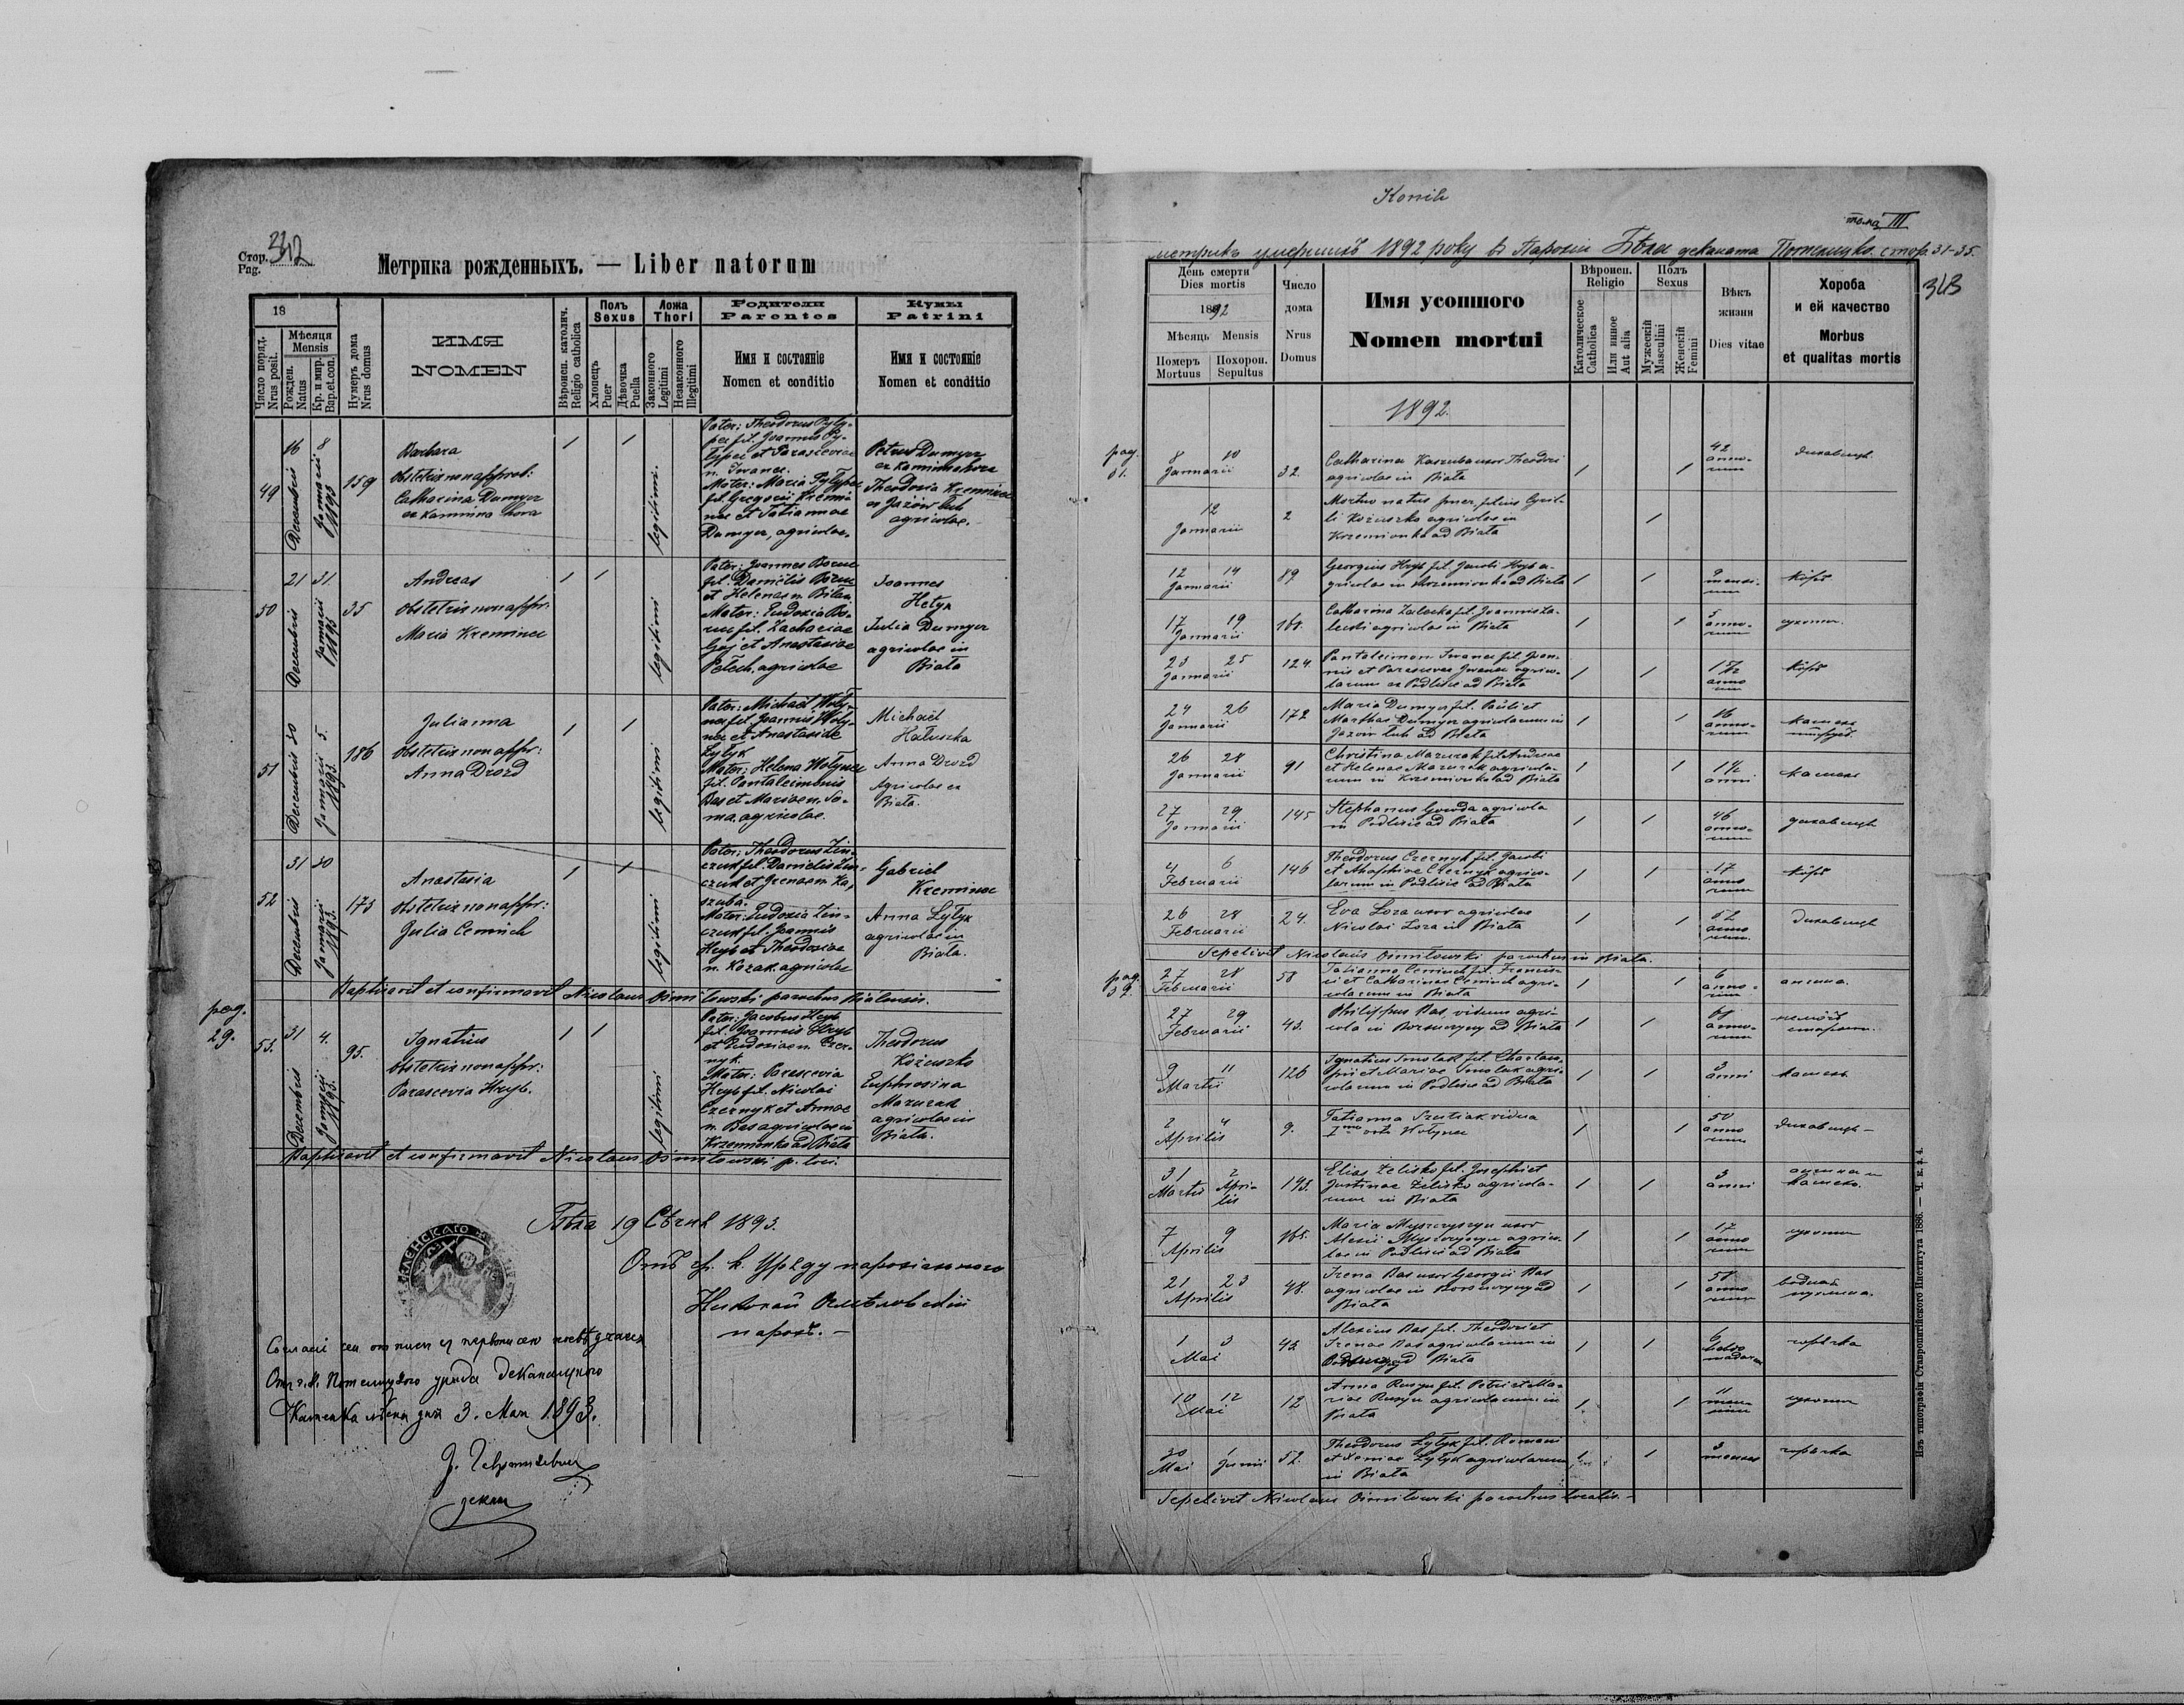 Стор. 342
Pag.
Метрика рожденныхъ. — Liber natorum
18
Число поряд.
Nrus posit.
Мѣсяця
Mensis
Рожден.
Natus
Кр. и мир.
Bap.et.con.
Нумеръ дома
Nrus domus
ИМЯ
NOMEN
Вѣроисп. католич.
Religio catholica
Полъ
Sexus
Хлопецъ
Puer
Дѣвочка
Puella
Ложа
Thori
Законного
Legitimi
Незаконного
Illegitimi
Родители
Parentes
Имя и состояніе
Nomen et conditio
Кумы
Patrini
Имя и состояніе
Nomen et conditio
49
16 8
Decembris
Januarii 1893
159
Barbara
obstetrix non approb:
Catharina Dumyer
ex Kaminna nova
1 1
legitimi.
Pater: Theodorus Pyly-
pec fil. Joannis Py-
lypec et Parasceviae
n. Iwanec.
Mater: Maria Pylypec
fil. Gregorii Kremi
nec et Tatiannae
Dumyer, agricolae.
Petrus Dumyer
ex Kaminna nova
Theodosia Kreminec
ex Jazów lub
agricolae.
50
21 31
Decembris
Januarii 1893
35
Andreas
obstetrix non appr:
Maria Kreminec
1 1
legitimi
Pater: Joannes Borue
fil. Danielis Borue
et Helenae n. Bilan
Mater: Eudoxia Bo-
rue fil. Zachariae
Gaj et Anastasiae
Petech, agricolae
Joannes
Hetyk
Julia Dumyer
agricolae in
Biała
51
Decembris 30
Januarii 5.
1893.
186
Julianna
obstetrix non appr:
Anna Drozd
1 1
legitimi
Pater: Michaël Woły-
nec fil. Joannis Woły-
nec et Anastasiae
Łytyk
Mater: Helena Wołynec
fil. Pantaleimonis
Bas et Mariae n. So-
ma, agricolae.
Michaël
Hałuszka
Anna Drozd
Agricolae ex
Biała.
52
31 30
Decembris
Januarii 1893.
173
Anastasia
obstetrix non appr:
Julia Cemiuch
1 1
legitimi
Pater: Theodorus Zin-
czuk fil. Danielis Zin-
czuk et Irenae n. Ka-
szuba.
Mater: Eudoxia Zin-
czuk fil. Joannis
Hryb et Theodosiae
n. Kozak agricolae
Gabriel
Kreminec
Anna Łytyk
agricolae in
Biała.
Baptisavit et confirmavit Nicolaus Osmiłowski parochus Bialensis.
pag.
29.
53.
31 4.
Decembris
Januarii 1893.
95.
Ignatius
obstetrix non appr:
Parascevia Hryb.
1 1
legitimi
Pater: Jacobus Hryb
fil. Joannis Hryb
et Eudoxiae n. Czer-
nyk.
Mater: Parascevia
Hryb fil. Nicolai
Czernyk et Annae
n. Bas agricolae in
Krzemionka ad Biała
Theodorus
Kożuszko
Euphrosina
Mazurak
agricolae in
Biała.
Baptisavit et confirmavit Nicolaus Osmiłowski p. loci.
Бѣла 19 Сѣчня 1893.
Отъ гр. к. Уряду парохіального
Николай Осмѣловскій
парохъ. —
Отъ г. к. Потелицкого уряда деканального
Каменка лѣсна дня 3. Мая 1893.
декан
Копія
томъ III
метрикъ умершихъ 1892 року въ Парохіи Бѣла деканата Потелицко. стор. 31-35.
343
День смерти
Dies mortis
1892
Мѣсяць Mensis
Померъ
Mortuus
Похорон.
Sepultus
Число
дома
Nrus
Domus
Имя усопшого
Nomen mortui
Вѣроисп.
Religio
Католическое
Catholica
Или инное
Aut alia
Полъ
Sexus
Мужескій
Masculini
Женскій
Femini
Вѣкъ
жизни
Dies vitae
Хороба
и ей качество
Morbus
et qualitas mortis
1892.
pag.
31.
8 10
Januarii
32.
Catharina Kaszuba uxor Theodori
agricolae in Biała
1 1
42
anno-
rum
12
Januarii
2
Mortuo natus puer, filius Cyril-
li Kożuszko agricolae in
Krzemionka ad Biała
1
12 14
Januarii
89
Georgius Hryb fil. Jacobi Hryb a-
gricolae in Krzemionka ad Biała
1 1
9
mensi-
um
кôръ
17 19
Januarii
168.
Catharina Zaleska fil. Joannis Za-
leski agricolae in Biała
1 1
5
anno-
rum
сухоты.
23 25
Januarii
124.
Pantaleimon Iwanec fil. Joan-
nis et Parasceviae Iwanec agrico-
larum ex Podlisie ad Biała
1 1
1 1/2
anno
rum
кôръ
24 26
Januarii
172
Maria Dumyer fil. Pauli et
Marthae Dumyer agricolarum in
Jazów lub ad Biała
1 1
16
anno-
rum
26 28
Januarii
91
Christina Mazurak fil. Andreae
et Helenae Mazurak agricola-
rum in Krzemionka ad Biała
1 1
1 1/2
anni
кашель
27 29
Januarii
145
Stephanus Gowda agricola
in Podlisie ad Biała
1 1
46
anno-
rum
4 6
Februarii
146
Theodorus Czernyk fil. Jacobi
et Ahaphiae Czernyk agrico-
larum in Podlisie ad Biała
1 1
17
anno
rum
кôръ
26 28
Februarii
24.
Eva Loza uxor agricolae
Nicolai Loza in Biała
1 1
52
anno
rum.
Sepelivit Nicolaus Osmiłowski parochus in Biała.
pag.
32.
27 28
Februarii
58
Tatianna Cemiuch fil. Francis-
ci et Catharinae Cemiuch agri-
colarum in Biała
1 1
6
anno-
rum
ангина.
27 29
Februarii
43.
Philippus Bas, viduus agri-
cola in Borsuczyny ad Biała
1 1
68
anno-
rum
9 11
Martii
126
Ignatius Smolak fil. Charlam-
pii et Mariae Smolak agri-
colarum in Podlisie ad Biała
1 1
3
anni
кашель
2 4
Aprilis
9.
Tatianna Szutiak vidua
1mo voto Wołynec
1 1
50
anno
rum
31 2
Martii Apri-
lis
193.
Elias Zelisko fil. Josephi et
Justinae Zelisko agricola-
rum in Biała
1 1
3
anni
7 9
Aprilis
165.
Maria Myszczyszyn uxor
Alexii Myszczyszyn agrico-
lae in Podlisie ad Biała
1 1
17
anno
rum
сухоты
21 23
Aprilis
48.
Irena Bas uxor Georgii Bas
agricolae in Borsuczyny ad
Biała
1 1
58
anno
rum
1 3
Mai
43.
Alexius Bas fil. Theodori et
Irenae Bas agricolarum in
Borsuczyny ad Biała
1 1
6
hebdo
madarum
горячка
10 12
Mai
12
Anna Rusyn fil. Petri et Ma-
riae Rusyn agricolarum in
Biała
1 1
11
men-
sium
сухоты
30 1
Mai Junii
52.
Theodorus Łytyk fil. Romani
et Xeniae Łytyk agricolarum
in Biała
1 1
3
menses
горячка
Sepelivit Nicolaus Osmiłowski parochus localis.
Изъ типографіи Ставропигійского Института 1886. — Ч. к. з. 4.